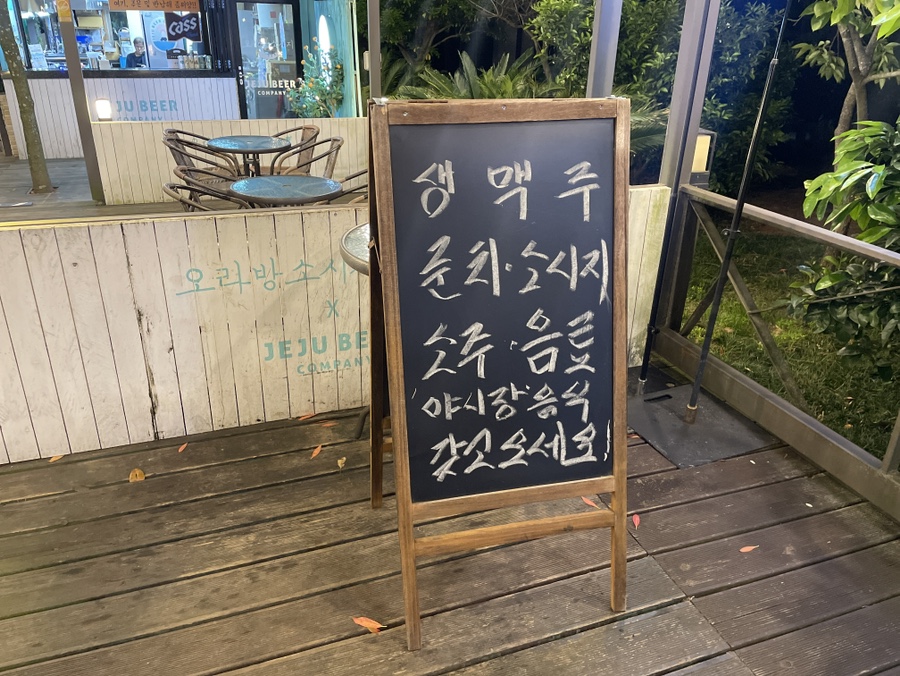 cass
JEJU BEER
COMPANY
JU BEER
COMPANY
생 맥 주
준치·소시지
소주·음료
'야시장'음식
갖고 오세요!
오라방소시
X
JEJU BE
COMPANY